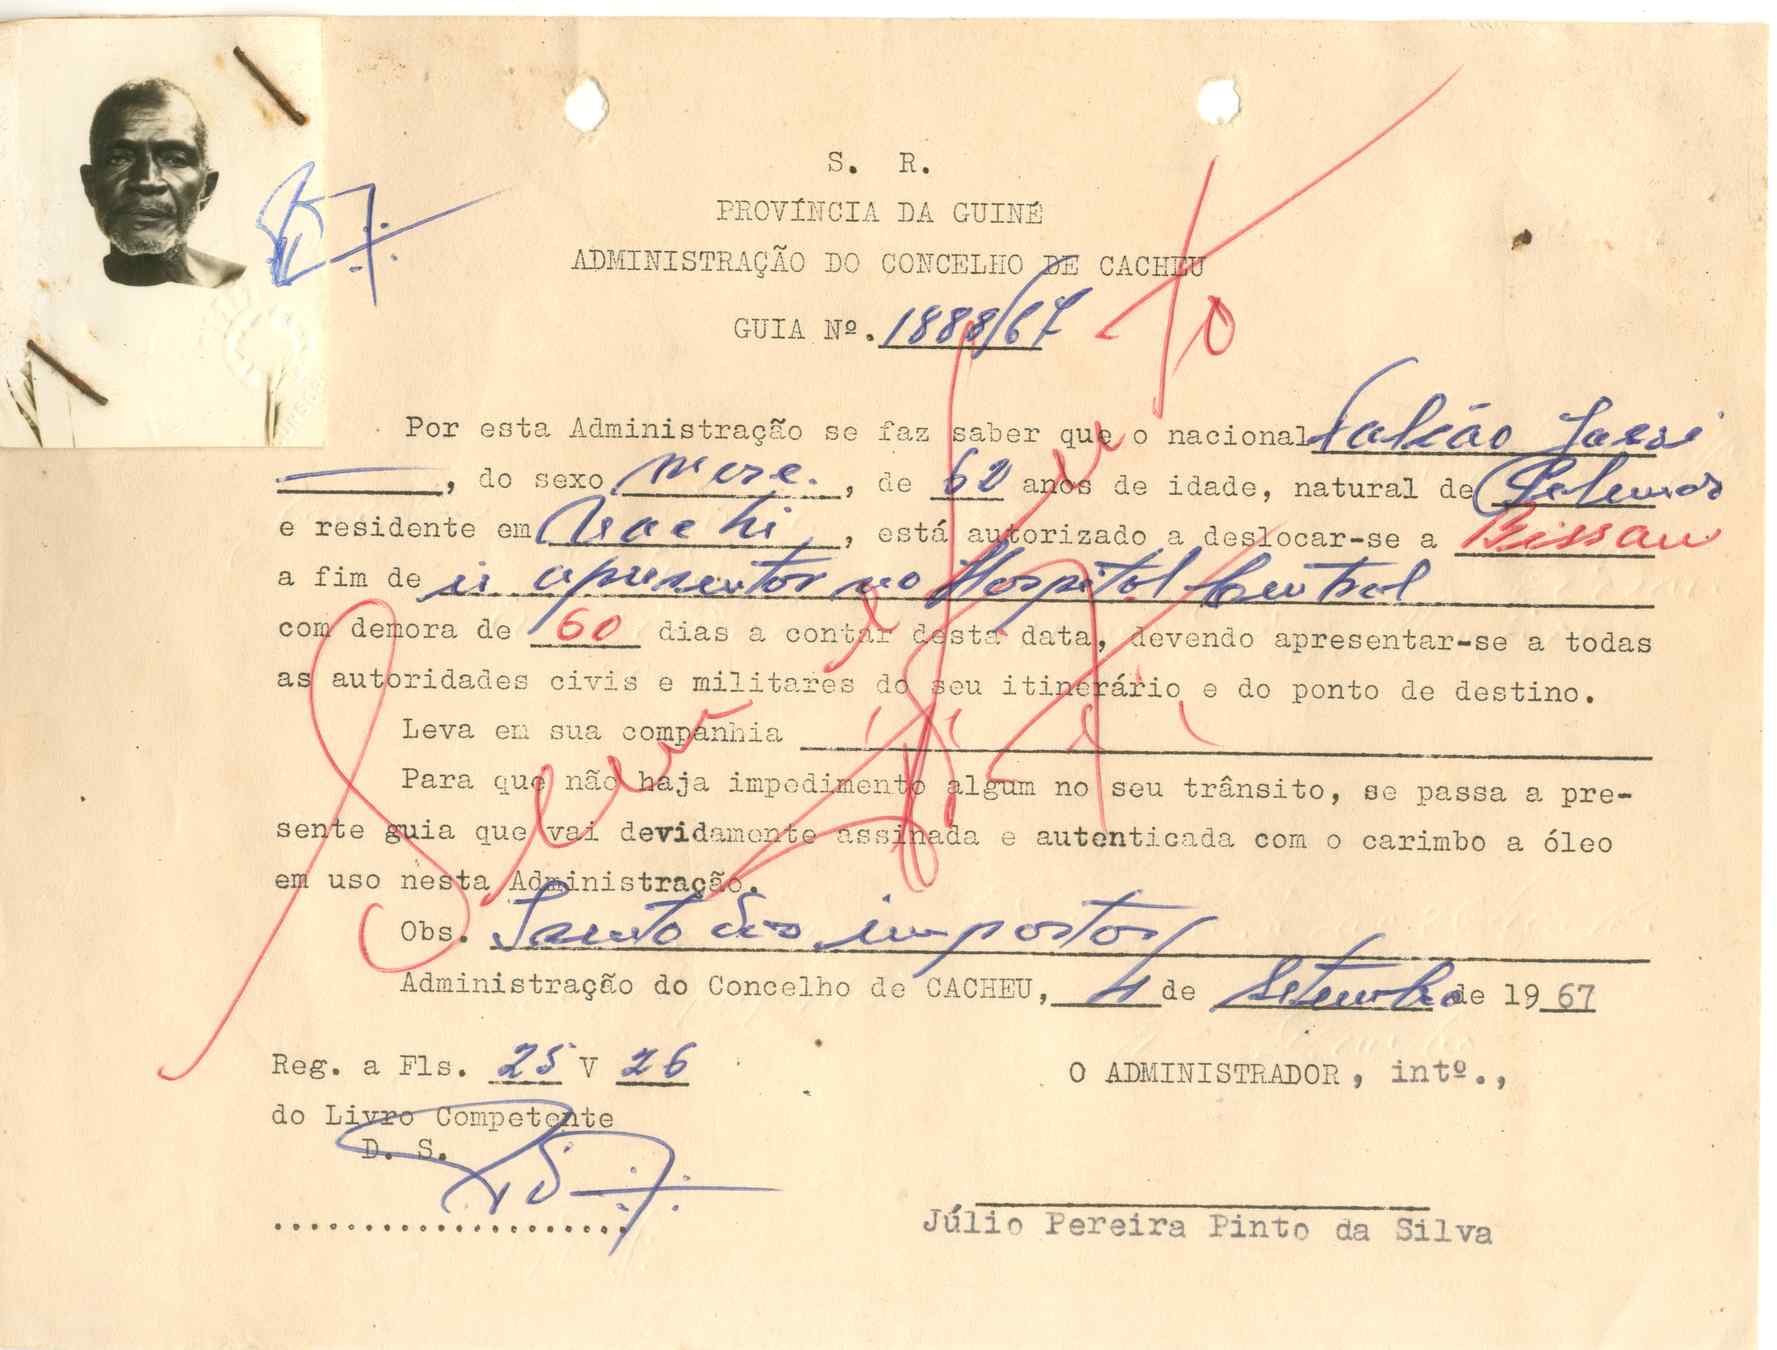 S. R.
PROVÍNCIA DA GUINÉ
ADMINISTRAÇÃO DO CONCELHO DE CACHEU
GUIA Nº. 1888/67
Por esta Administração se faz saber que o nacional Falcão
, do sexo masc. , de 62 anos de idade, natural de
e residente em , está autorizado a deslocar-se a Bissau
a fim de ir apresentar no Hospital Central
com demora de 60 dias a contar desta data, devendo apresentar-se a todas
as autoridades civis e militares do seu itinerário e do ponto de destino.
Leva em sua companhia
Para que não haja impedimento algum no seu trânsito, se passa a pre-
sente guia que vai devidamente assinada e autenticada com o carimbo a óleo
em uso nesta Administração.
Obs. Isento dos impostos
Administração do Concelho de CACHEU, 4 de Setembro de 1967
Reg. a Fls. 25 V 26
do Livro Competente
D. S.
O ADMINISTRADOR, intº.,
Júlio Pereira Pinto da Silva